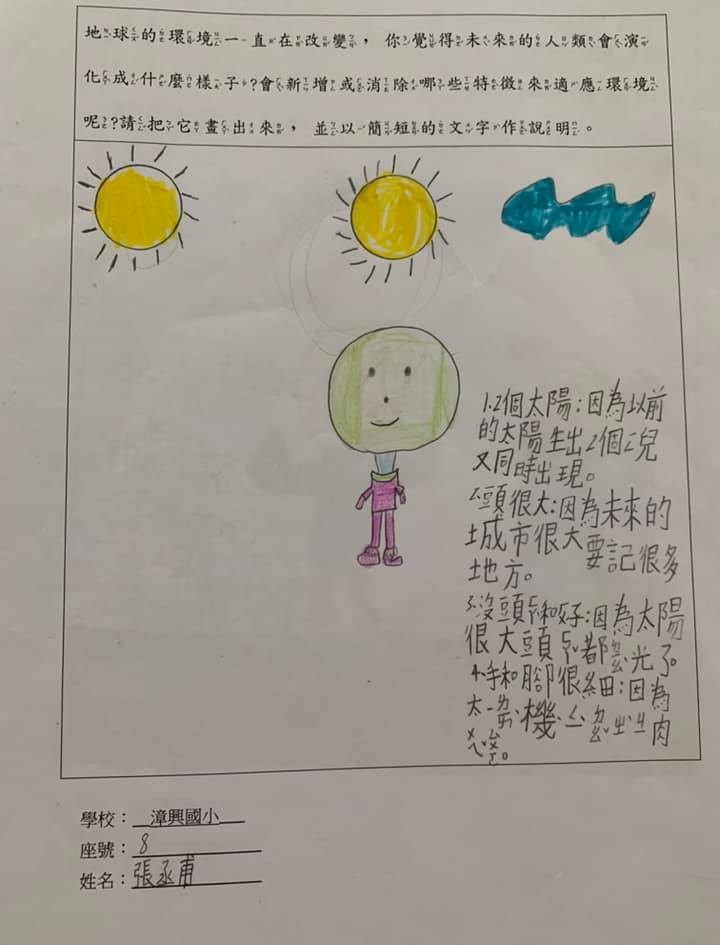 地球的環境一直在改變，你覺得未來的人類會演
化成什麼樣子？會新增或消除哪些特徵來適應環境
呢？請把它畫出來，並以簡短的文字作說明。
1.2個太陽：因為以前
的太陽生出2個ㄦ兒
又同時出現。
2.頭很大：因為未來的
城市很大要記很多
地方。
3.沒頭ㄈㄚˇ和：因為太陽
很大頭ㄈㄚˇ都光了。
4.手和腳很細：因為
太機肉
學校：漳興國小
座號：8
姓名：張丞甫